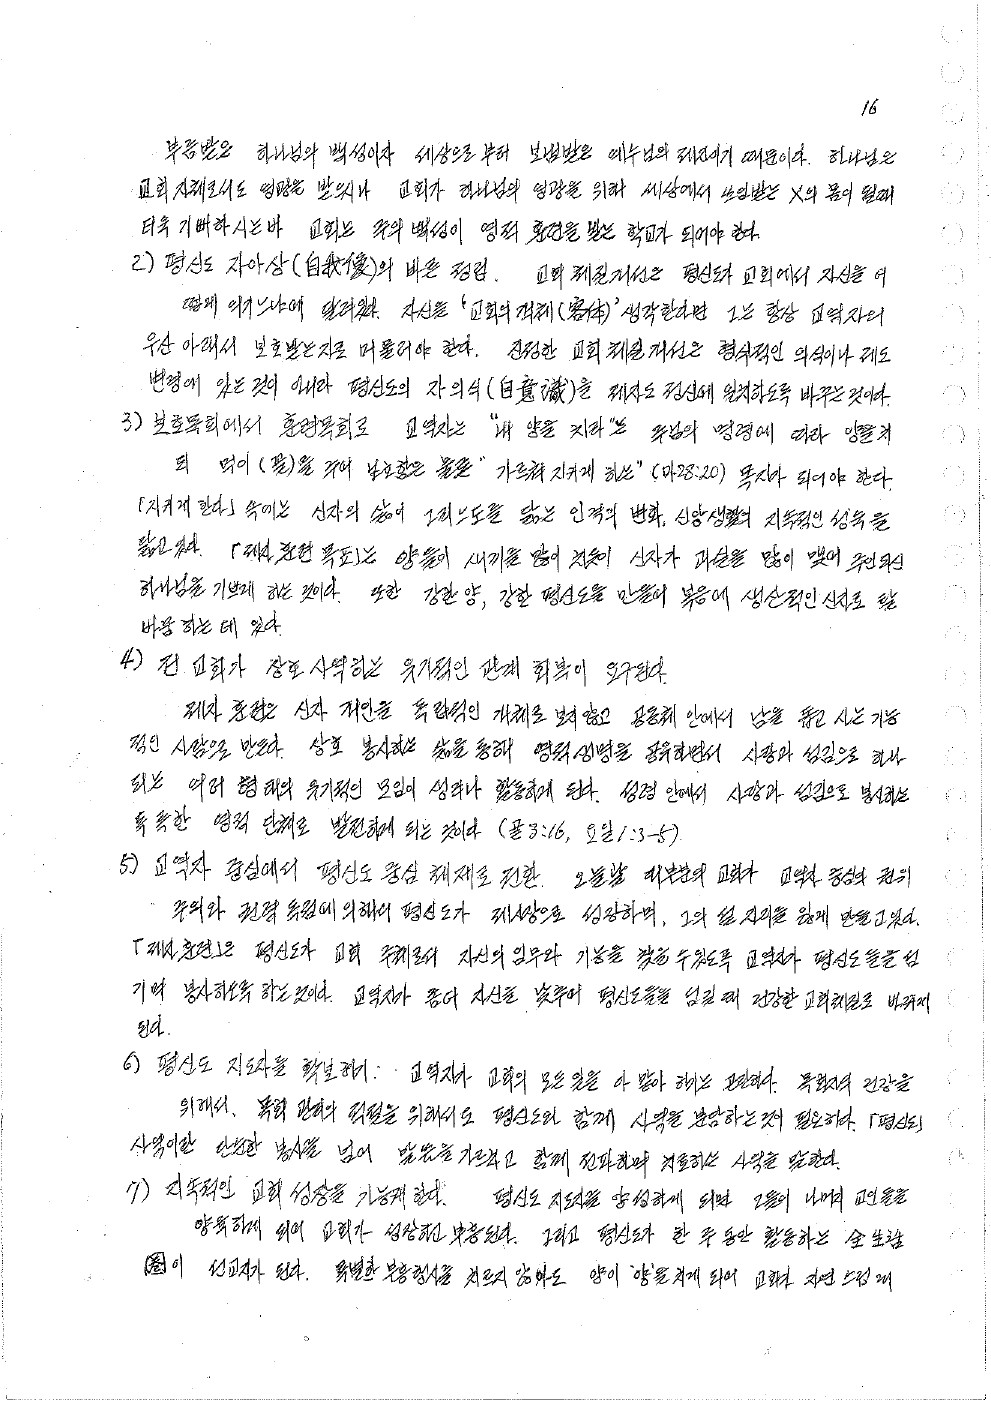 16
부름받은 하나님의 백성이자 세상으로부터 보냄받은 예수님의 제자이기 때문이다. 하나님은
교회 자체로서도 영광을 받으시나 교회가 하나님의 영광을 위해 세상에서 쓰임받는 X의 몸이 될때
더욱 기뻐하시는바 교회는 주의 백성이 영적 훈련을 받는 학교가 되어야 한다.
2) 평신도 자아상(自我像)의 바른 정립. 교회 체질개선은 평신도가 교회에서 자신을 어
떻게 여기느냐에 달려있다. 자신을 '교회의 객체(客体)' 생각한다면 그는 항상 교역자의
우산 아래서 보호받는자로 머물러야 한다. 진정한 교회 체질개선은 형식적인 의식이나 제도
변경에 있는 것이 아니라 평신도의 자의식(自意識)을 제자도 정신에 일치하도록 바꾸는 것이다.
3) 보호목회에서 훈련목회로 교역자는 "내 양을 치라"는 주님의 명령에 따라 양을 쳐
되 먹이(꼴)을 주어 보호함은 물론 "가르쳐 지키게 하는"(마28:20) 목자가 되어야 한다.
「지키게 한다」 속에는 신자의 삶이 그리스도를 닮는 인격의 변화, 신앙생활의 지속적인 성숙을
담고 있다. 「제자훈련 목표」는 양들이 새끼를 많이 낳듯이 신자가 과실을 많이 맺어 주인되신
하나님을 기쁘게 하는 것이다. 또한 강한 양, 강한 평신도를 만들어 복음에 생산적인 신자로 탈
바꿈 하는 데 있다.
4) 전 교회가 상호 사역하는 유기적인 관계 회복이 요구된다.
제자 훈련은 신자 개인을 독립적인 개체로 보지 않고 공동체 안에서 남을 돕고 사는 기능
적인 사람으로 만든다. 상호 봉사하는 삶을 통해 영적생명을 공유하면서 사랑과 섬김으로 하나
되는 여러 형태의 유기적인 모임이 생겨나 활동하게 된다. 성령 안에서 사랑과 섬김으로 봉사하는
독특한 영적 단체로 발전하게 되는 것이다 (골3:16, 요일1:3-5)
5) 교역자 중심에서 평신도 중심 체제로 전환. 오늘날 대부분의 교회가 교역자 중심의 권위
주의와 전적 독점에 의해서 평신도가 제사장으로 성장하며, 그의 설 자리를 잃게 만들고 있다.
「제자훈련」은 평신도가 교회 주체로서 자신의 임무와 기능을 찾을 수 있도록 교역자가 평신도들을 섬
기며 봉사하도록 하는 것이다. 교역자가 좀더 자신을 낮추어 평신도들을 섬길 때 건강한 교회체질로 바뀌게
된다.
6) 평신도 지도자를 확보하기: 교역자가 교회의 모든 일을 다 맡아 하기는 곤란하다. 목회자의 건강을
위해서, 목회 관리의 적절을 위해서도 평신도와 함께 사역을 분담하는 것이 필요하다. 「평신도」
사역이란 단순한 봉사를 넘어 말씀을 가르치고 함께 전파하며 치료하는 사역을 말한다.
7) 지속적인 교회 성장을 가능케 한다. 평신도 지도자를 양성하게 되면 그들이 나머지 교인들을
양육하게 되어 교회가 성장하고 부흥된다. 그리고 평신도가 한 주 동안 활동하는 全 生활
圈이 선교지가 된다. 특별한 부흥행사를 치르지 않아도 양이 '양'을 치게 되어 교회가 자연스럽게